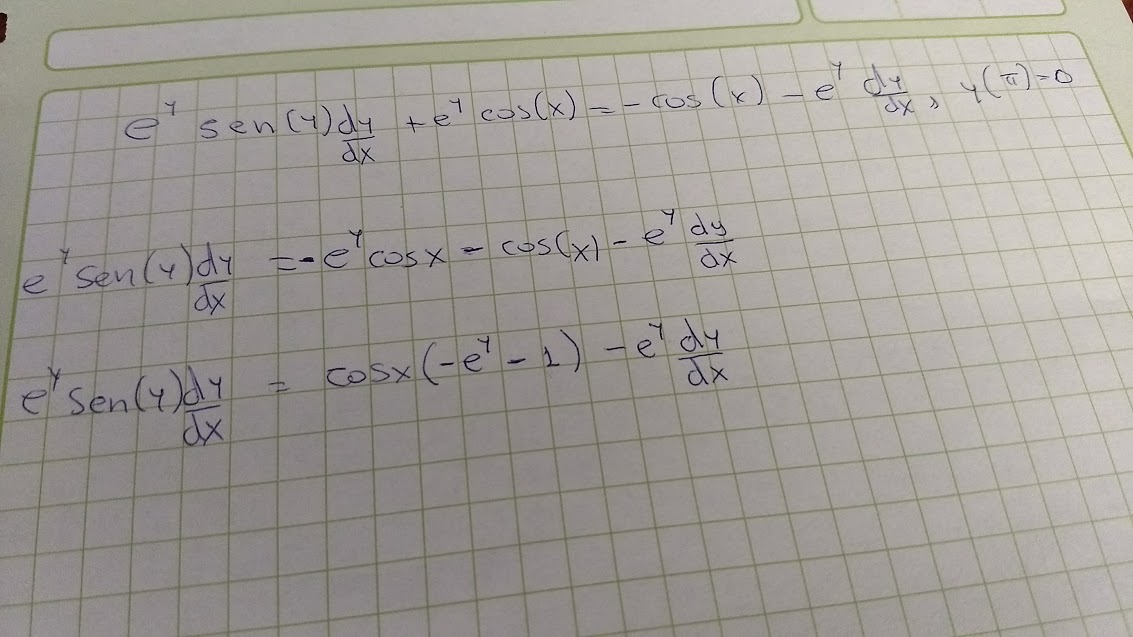 e^y sen(y) dy/dx + e^y cos(x) = - cos(x) - e^y dy/dx, y(π)=0
e^y sen(y) dy/dx = - e^y cosx - cos(x) - e^y dy/dx
e^y sen(y) dy/dx = cosx(-e^y - 1) - e^y dy/dx